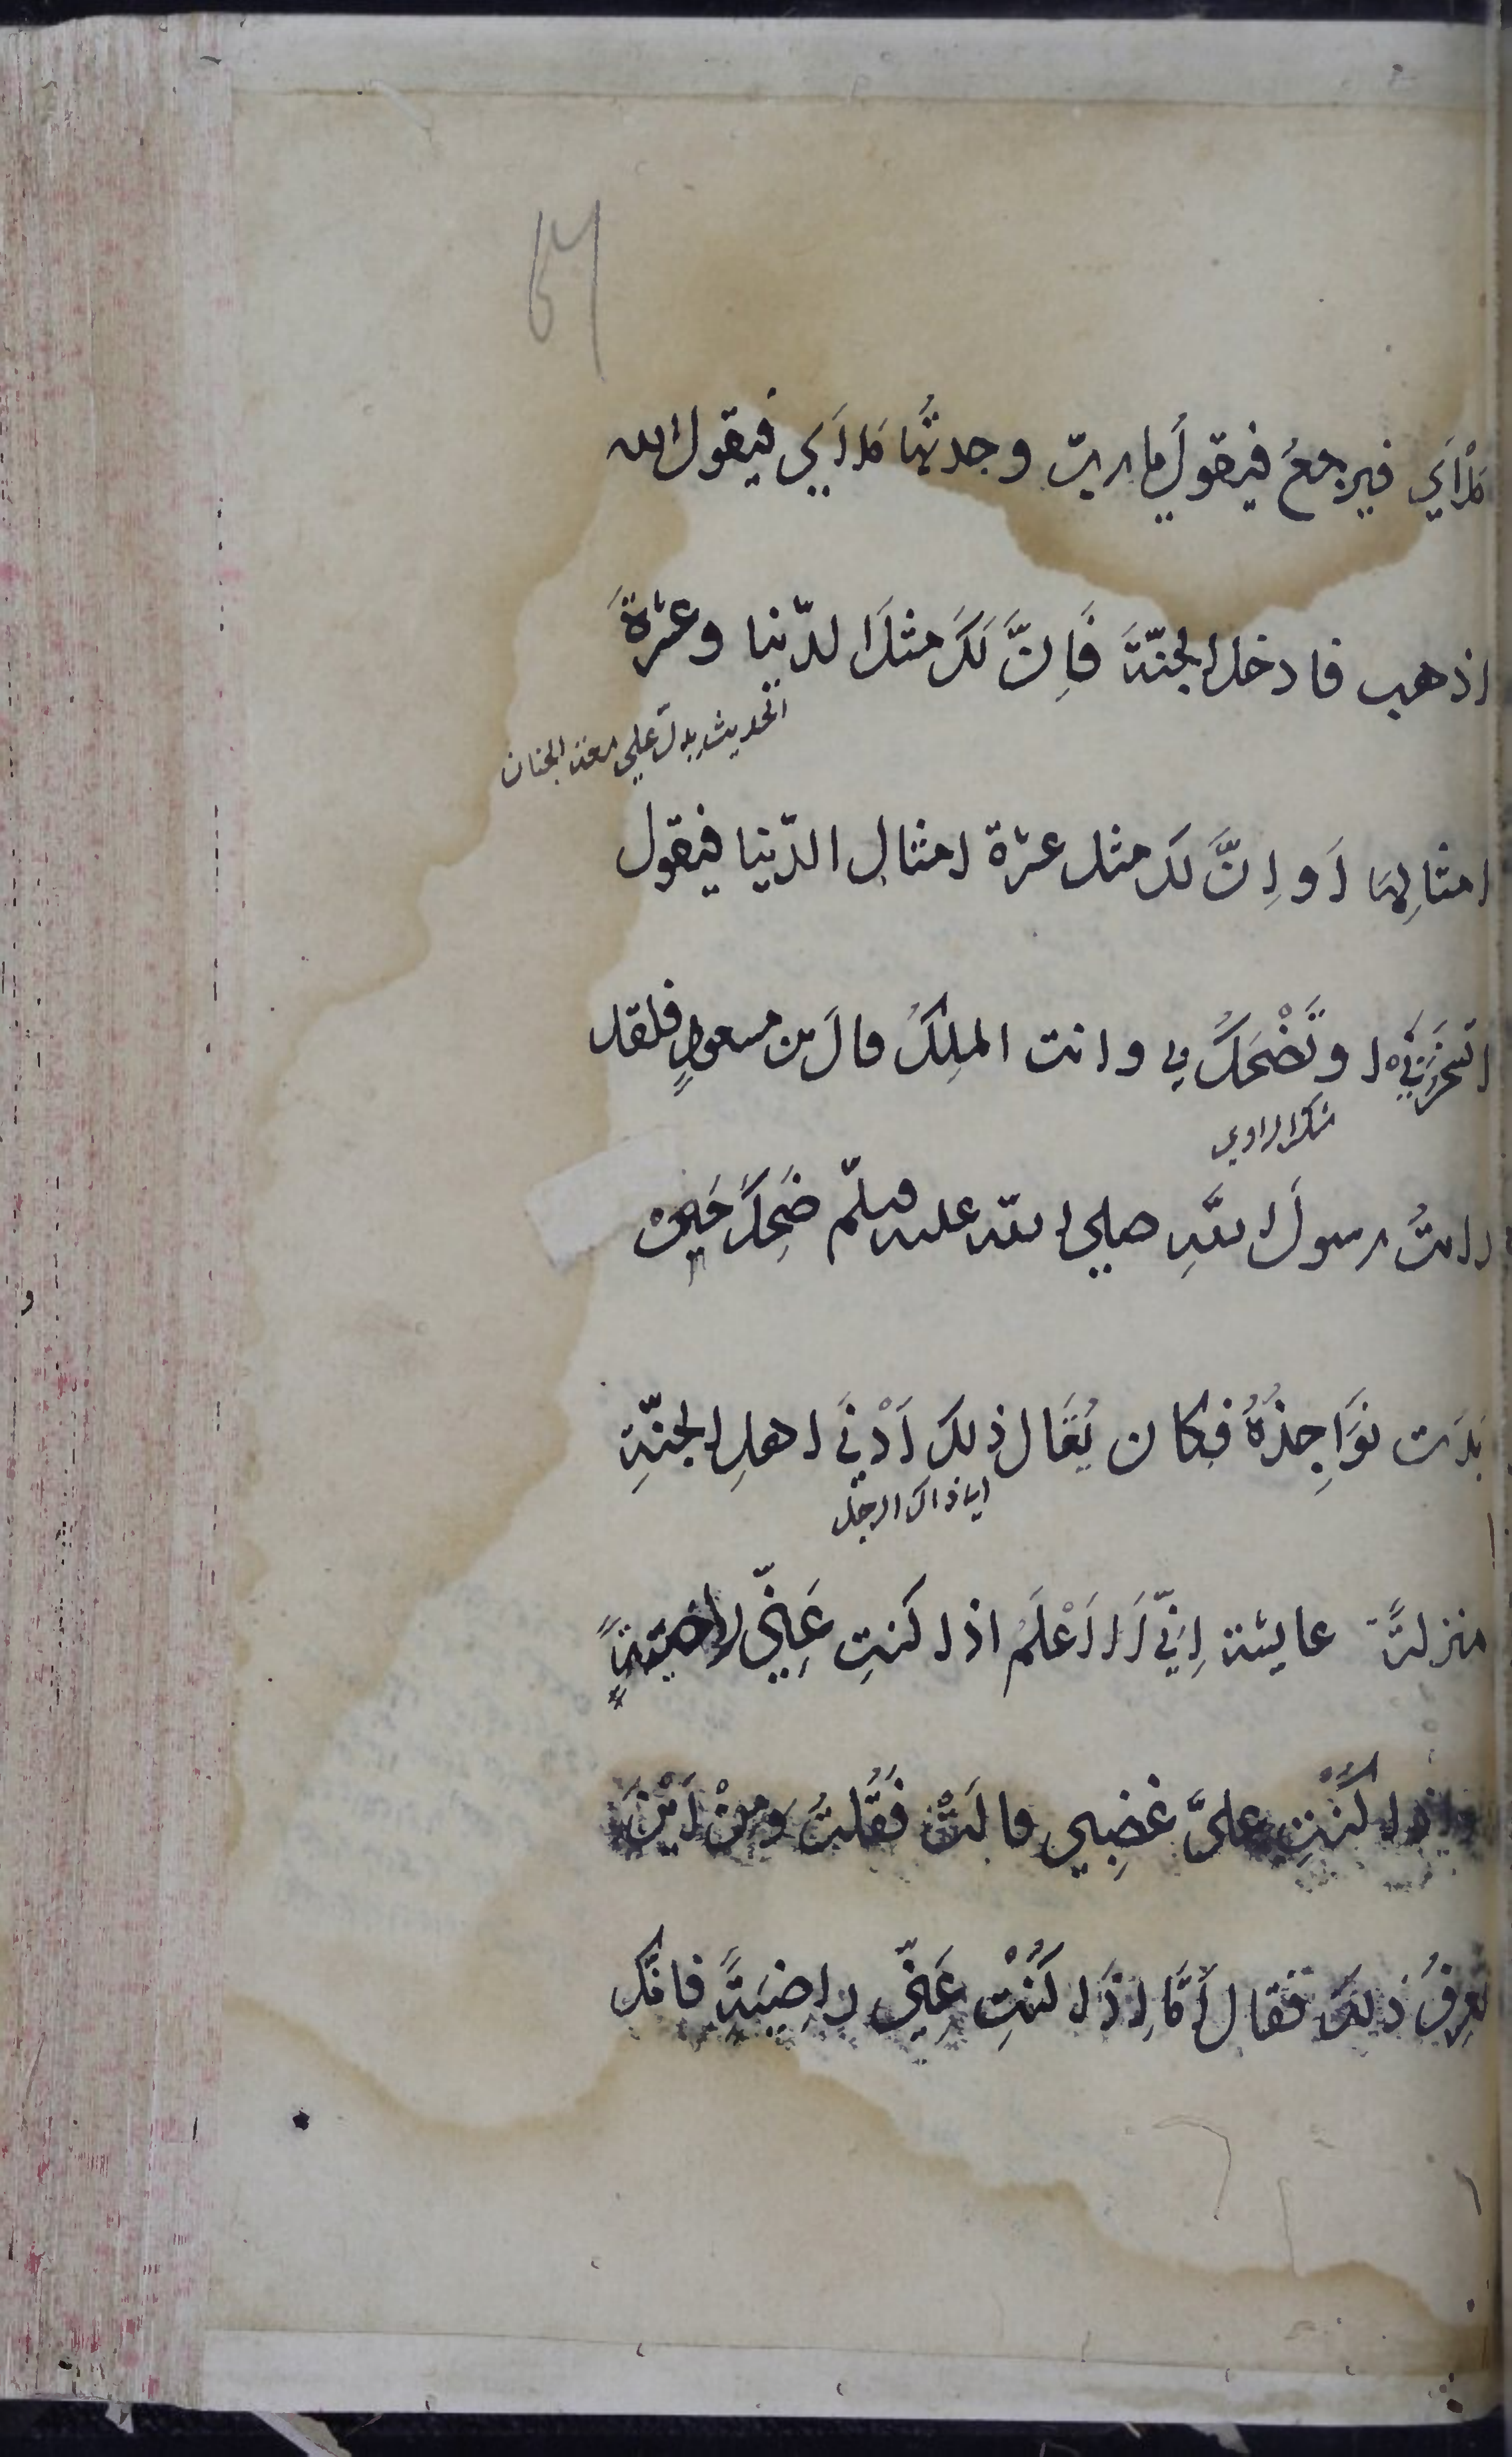 ملأى فيرجع فيقول يا رب وجدتها ملأى فيقول الله
اذهب فادخل الجنّة فَاِنَّ لَكَ مثلَ الدّنيا وعشرةَ
الحديث يدل على الجنان
امثالِها اَو اِنَّ لك مثل عشرة امثال الدّنيا فيقول
اتسخَر بي او تَضْحَكُ بي وانت الملِكُ قالَ بن مسعودٍ فلقد
شك الراوي
رايتُ رسولَ اللّهِ صلى اللّه عليه وسلّم ضَحِكَ حَتى
بَدَت نوَاجِذُهُ فكان يُقَال ذلك اَدْنَى اهلِ الجنّةِ
ذاك الرجل
منزلةً عايشة اِنِّي لَاَعْلَمُ اذا كنتِ عَنِّي راضيةً
واذا كُنْتِ عليَّ غَضِبي قالَتْ فَقُلتُ وَمِنْ اَيْنَ
تعرِفُ ذلك فقال اَمَّا اِذَا كُنْتِ عَنِّي راضِيَةً فانك